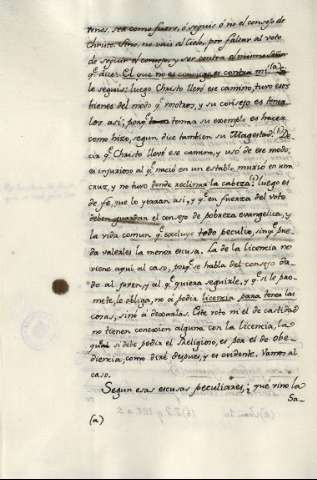 tenes, sea como fuere, ó seguis ó no el consejo de
Christo. Sino, no vais al Cielo, por faltar al voto
de seguir el consejo, y ser contra el mismo Señor
q.e dice: El que no es conmigo es contra mi (a)
le seguis: luego Christo llevó ese camino, tuvo sus
bienes del modo q.e vosotros, y su consejo es
los asi; porq.e toma su exemplo es hacer
como hizo, segun dice tambien su Magestad. (b)
cia q.e Christo llevó ese camino, y usó de ese modo,
es injurioso al q.e nació en un establo, murió en una
cruz, y no tuvo donde reclinar la cabeza: luego es
de fe, que lo yerran asi, y q.e en fuerza del voto
deben guardar el consejo de pobreza evangelica, y
la vida comun q.e excluye todo peculio, sin q.e pue-
da valerles la menor escusa. La de la licencia no
viene aqui al caso, porq.e se habla del consejo da-
do al joven, y al q.e quiera seguirle, y q.e si le pro-
mete, le obliga, no á pedir licencia para tener las
cosas, sinó á dexarlas. Este voto ni el de castidad
no tienen conexion alguna con la licencia, la
qual si debe pedir el Religioso, es por el de Obe-
diencia, como diré despues, y es evidente. Vamos al
caso.
Segun esas escusas peculiares, que vino la
Sa-
(a)